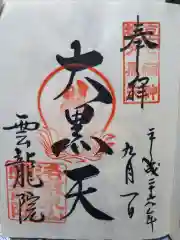 奉拝
平成二十六年
九月一日
大黒天
雲龍院